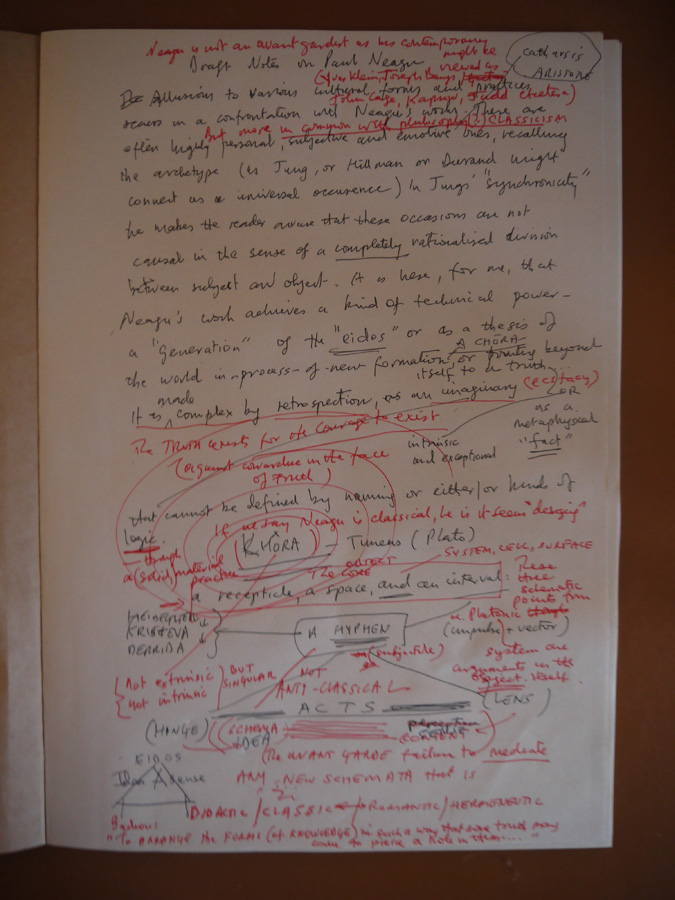 Neagu is not an avant gardist as his contemporary
might be
viewed as
Draft Notes on Paul Neagu
catharsis
ARISTOTLE
(Yves Klein, Joseph Beuys,
Allusions to various cultural forms and practices
John Cage, Kaprow, Judd etcetera)
occurs in a confrontation with Neagu's work. These are
But more in common with philosophical CLASSICISM
often highly personal, subjective and emotive ones, recalling
the archetype (as Jung, or Hillman or Durand might
connect as a universal occurence) In Jungs' "synchronicity"
he makes the reader aware that these occasions are not
causal in the sense of a completely rationalised division
between subject and object. It is here, for me, that
Neagu's work achieves a kind of technical power-
a "generation" of the "eidos" or as a thesis of
A CHŌRA
the world in-process-of-new formations, or pointing beyond
itself to a truth
made
It is complex by retrospection, as an imaginary (ecstacy)
OR
as a
metaphysical
"fact"
The TRUTH exists for its Courage to exist
intrinsic
and exceptional
(against cowardice in the face
of
that cannot be defined by naming or either/or kinds of
logic.
If we say Neagu is classical, he is it seems "designing"
(KHŌRA) Timeus (Plato)
through
a (solid) material
practice
SYSTEM, CELL, SURFACE
OBJECT
THE CORE
a recepticle, a space, and an interval:
These
three
schematic
points form
HEIDEGGER
KRISTEVA
DERRIDA
A HYPHEN
a Platonic
(impulse) + vector)
(subjectile)
system are
arguments in the
object itself
(not extrinsic
not intrinsic)
BUT
SINGULAR
NOT
ANTI-CLASSICAL
ACTS
(LENS)
(HINGE)
(SCHEMA
IDEA
perception
CONTENT
(The AVANT GARDE failure to mediate
EIDOS
Idea
sense
ANY NEW SCHEMATA that is
DIDACTIC / CLASSIC / ROMANTIC / HERMENEUTIC
"To ARRANGE the FORMS (of KNOWLEDGE) in such a way that some truth may
come to pierce a hole in them....."